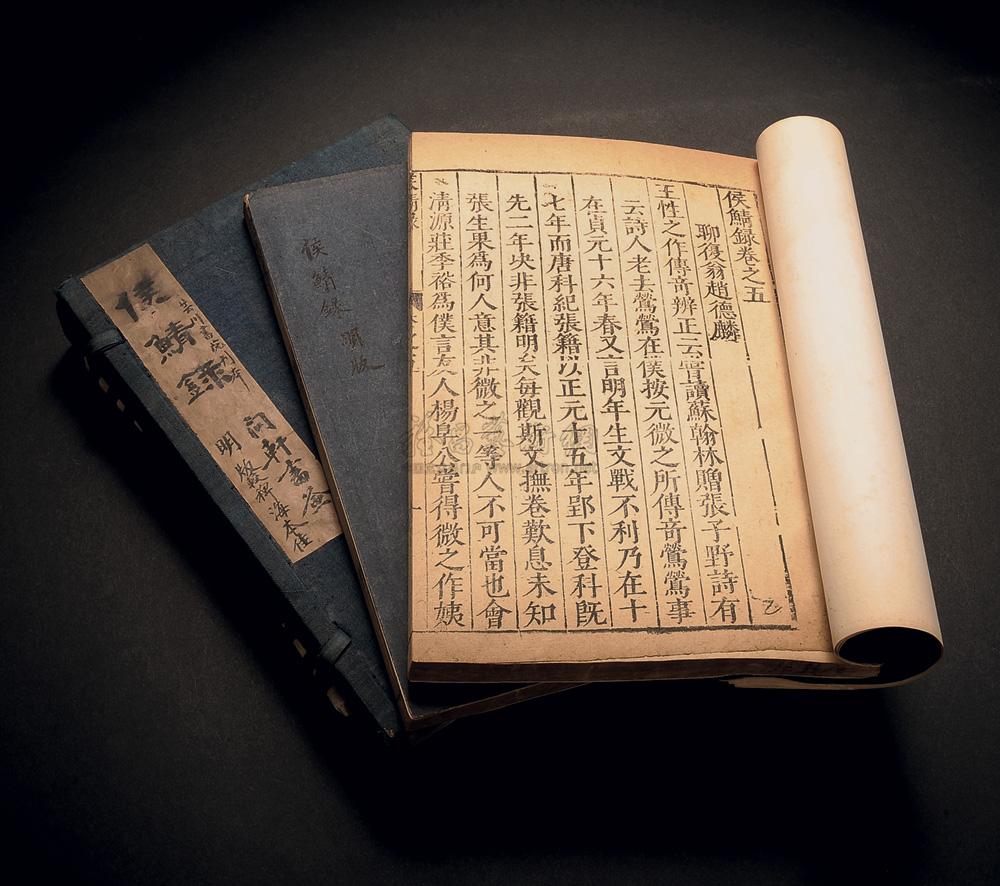 侯鯖錄卷之五
聊復翁趙德麟
王性之作傳奇辨正云嘗讀蘇翰林贈張子野詩有
云詩人老去鶯鶯在僕按元微之所傳奇鶯鶯事
在貞元十六年春又言明年生文戰不利乃在十
七年而唐科紀張籍以正元十五年郢下登科既
先二年决非張籍明矣每觀斯文撫卷歎息未知
張生果為何人意其非微之一等人不可當也會
清源莊季裕為僕言友人楊阜公嘗得微之作姨
侯鯖錄 明版
侯鯖錄
明